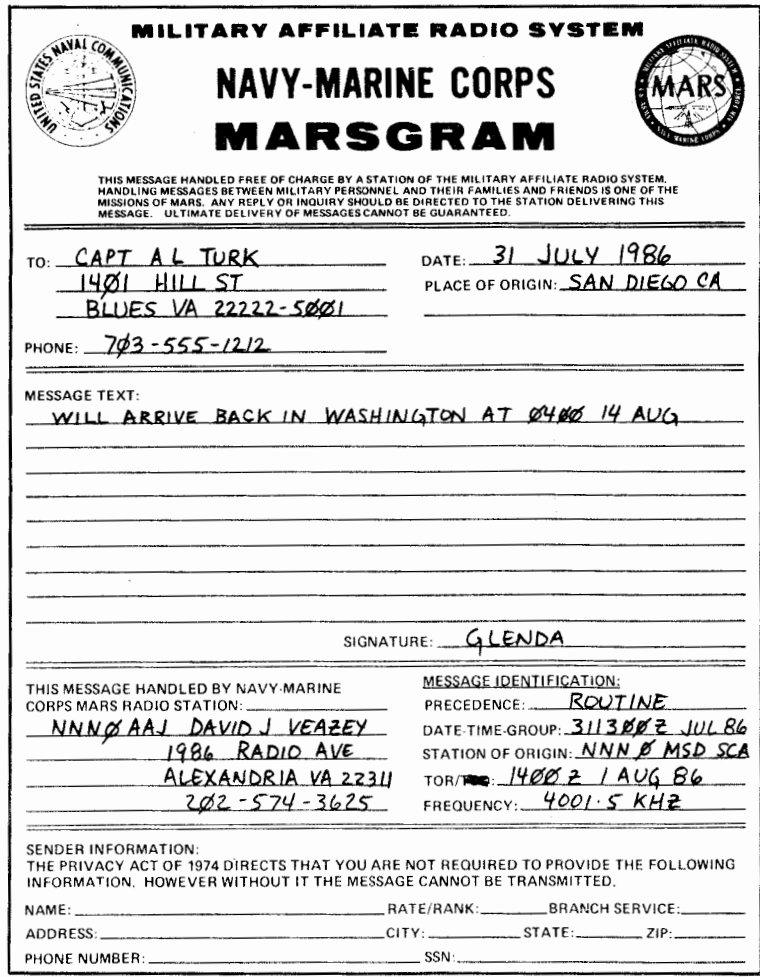 MILITARY AFFILIATE RADIO SYSTEM
UNITED STATES NAVAL COMMUNICATIONS
NAVY-MARINE CORPS
MARS
MARSGRAM
THIS MESSAGE HANDLED FREE OF CHARGE BY A STATION OF THE MILITARY AFFILIATE RADIO SYSTEM.
HANDLING MESSAGES BETWEEN MILITARY PERSONNEL AND THEIR FAMILIES AND FRIENDS IS ONE OF THE
MISSIONS OF MARS. ANY REPLY OR INQUIRY SHOULD BE DIRECTED TO THE STATION DELIVERING THIS
MESSAGE. ULTIMATE DELIVERY OF MESSAGES CANNOT BE GUARANTEED.
TO: CAPT A L TURK
14Ø1 HILL ST
BLUES VA 22222-5ØØ1
PHONE: 7Ø3-555-1212
DATE: 31 JULY 1986
PLACE OF ORIGIN: SAN DIEGO CA
MESSAGE TEXT:
WILL ARRIVE BACK IN WASHINGTON AT Ø4ØØ 14 AUG
SIGNATURE: GLENDA
THIS MESSAGE HANDLED BY NAVY-MARINE
CORPS MARS RADIO STATION:
NNNØAAJ DAVID J VEAZEY
1986 RADIO AVE
ALEXANDRIA VA 22311
2Ø2-574-3625
MESSAGE IDENTIFICATION:
PRECEDENCE: ROUTINE
DATE-TIME-GROUP: 3113ØØZ JUL 86
STATION OF ORIGIN: NNNØMSD SCA
TOR/: 14ØØZ 1 AUG 86
FREQUENCY: 4001.5 KHZ
SENDER INFORMATION:
THE PRIVACY ACT OF 1974 DIRECTS THAT YOU ARE NOT REQUIRED TO PROVIDE THE FOLLOWING
INFORMATION. HOWEVER WITHOUT IT THE MESSAGE CANNOT BE TRANSMITTED.
NAME: RATE/RANK: BRANCH SERVICE:
ADDRESS: CITY: STATE: ZIP:
PHONE NUMBER: SSN: